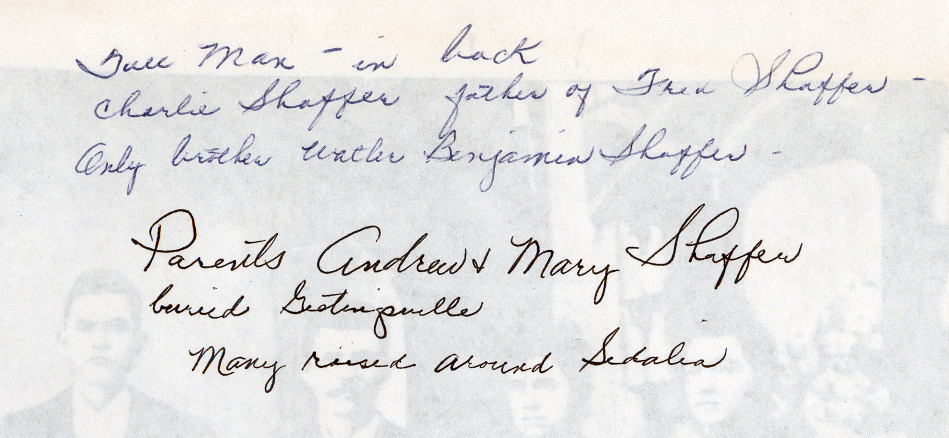 Tall Man - in back
Charlie Shaffer father of Fred Shaffer -
Only brother Watler Benjamin Shaffer -
Parents Andrew & Mary Shaffer
buried Geetingsville
Many raised around Sedalia